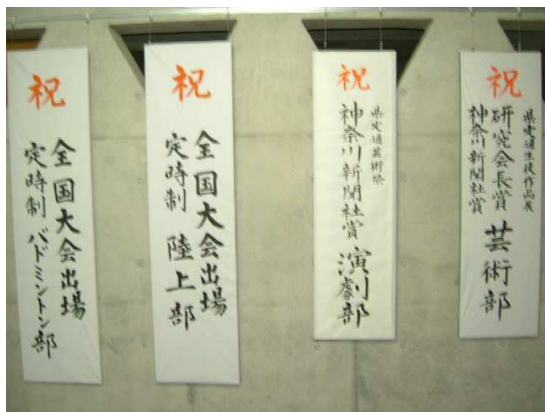 祝
全国大会出場
定時制 バドミントン部
祝
全国大会出場
定時制 陸上部
祝
県定通芸術祭
神奈川新聞社賞 演劇部
祝
県定通生徒作品展
研究会長賞
神奈川新聞社賞 芸術部